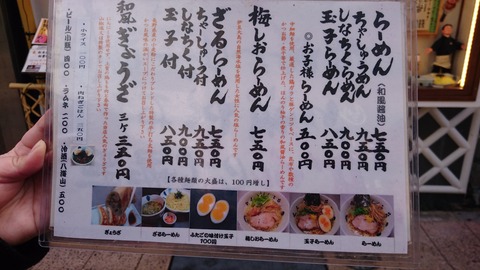 らーめん（和風醤油） 七五〇円
ちゃーしゅうめん 九五〇円
しなちくらーめん 九〇〇円
玉子らーめん 八五〇円
◎お子様らーめん 五〇〇円
梅しおらーめん 七五〇円
ざるらーめん 七五〇円
ちゃーしゅー付 九五〇円
しなちく付 九〇〇円
玉子付 八五〇円
和風ぎょうざ 三ケ 三五〇円
・小ライス 一〇〇円
・肉ねぎごはん 三五〇円
・ビール（小瓶）四〇〇
・ラムネ 二〇〇
・冷酒（八海山）五〇〇
【各種麺類の大盛は、100円増し】
ぎょうざ
ざるらーめん
ふたごの味付け玉子
100円
梅しおらーめん
玉子らーめん
らーめん